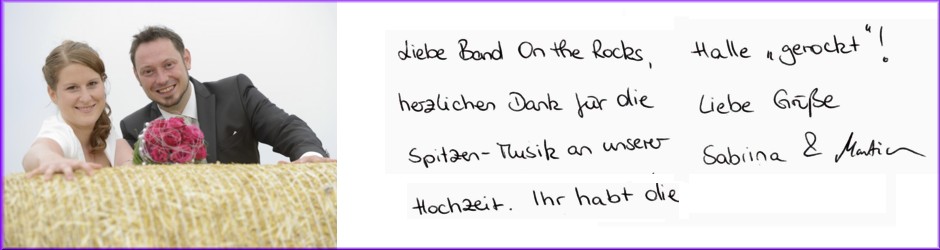 Liebe Band On the Rocks,
herzlichen Dank für die
Spitzen-Musik an unserer
Hochzeit. Ihr habt die
Halle „gerockt“!
Liebe Grüße
Sabrina & Martin